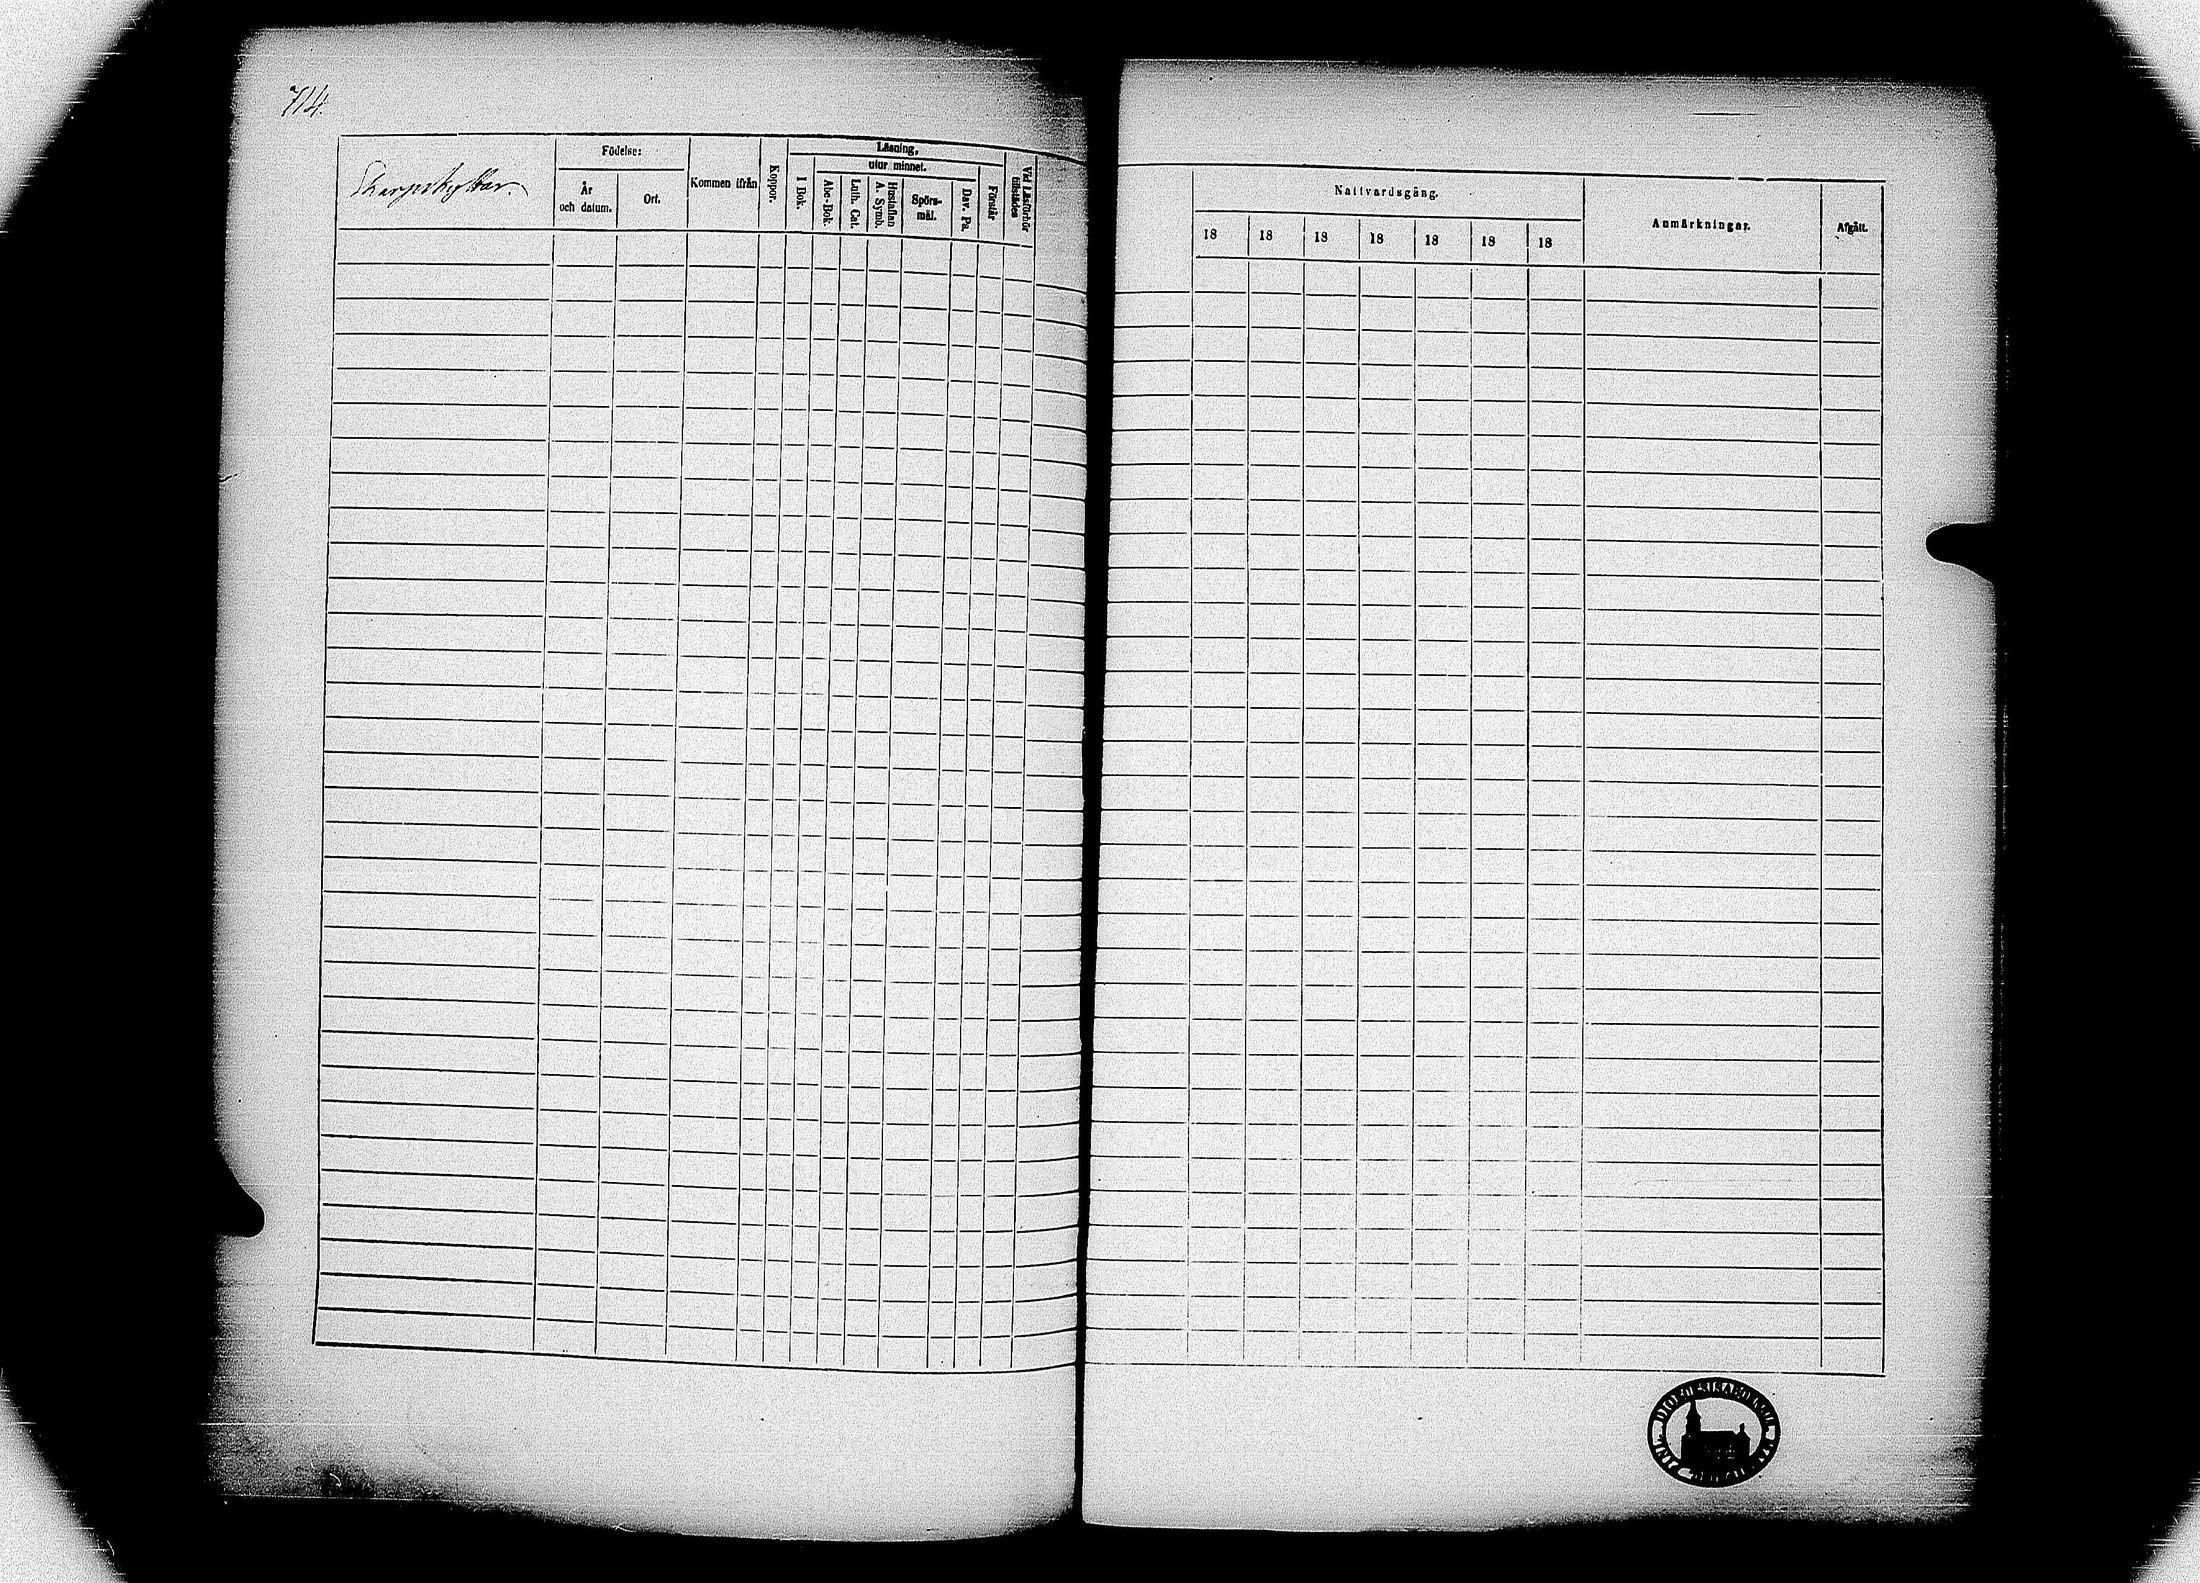 714.
Skarpskyttar.
Födelse:
År
och datum.
Ort.
Kommen ifrån
Koppor.
Läsning,
I Bok.
utur minnet.
Abc-Bok.
Luth. Cat.
Hustaflan
A. Symb.
Spörs-
mål.
Dav. Ps.
Förstår
Vid Läsförhör
tillstädes
Nattvardsgång.
18 18 18 18 18 18 18
Anmärkningar.
Afgått.